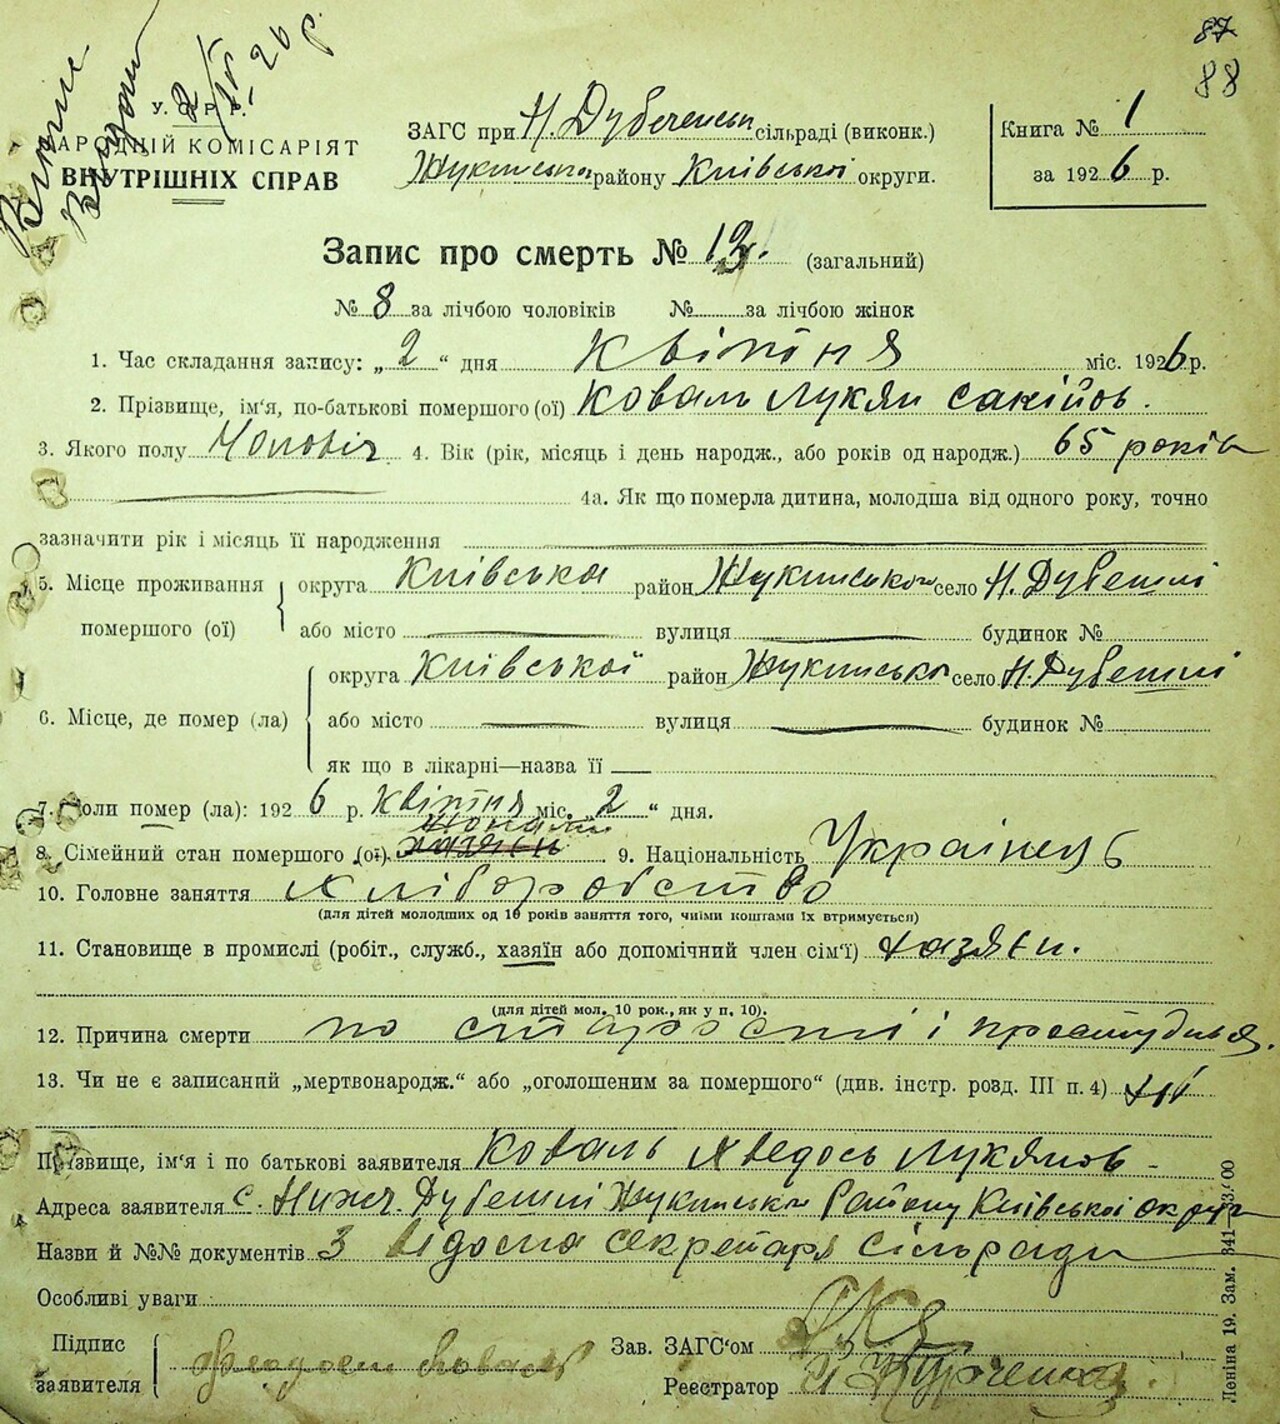 87
88
Виписи
Видани
2/IV 26 р
У. С. Р. Р.
НАРОДНІЙ КОМІСАРІЯТ
ВНУТРІШНІХ СПРАВ
ЗАГС при Н. Дубеченськ сільраді (виконк.)
Жукинська району Київської округи.
Книга № 1
за 1926 р.
Запис про смерть № 13. (загальний)
№ 8 за лічбою чоловіків № за лічбою жінок
1. Час складання запису: „2“ дня Квітня міс. 1926 р.
2. Прізвище, ім'я, по-батькові помершого (ої) Коваль Лукян Сакійов.
3. Якого полу Чоловіч 4. Вік (рік, місяць і день народж., або років од народж.) 65 років
4а. Як що померла дитина, молодша від одного року, точно
зазначити рік і місяць її народження
5. Місце проживання помершого (ої) округа Київська район Жукинського село Н. Дубешні
або місто вулиця будинок №
6. Місце, де помер (ла) округа Київської район Жукинсько село Н. Дубешні
або місто вулиця будинок №
як що в лікарні—назва її
7. Коли помер (ла): 1926 р. Квітня міс. „2“ дня.
8. Сімейний стан помершого (ої) хазяєн 9. Національність Українець
10. Головне заняття хліборобство
(для дітей молодших од 10 років заняття того, чиїми коштами їх втримується)
11. Становище в промислі (робіт., служб., хазяїн або допомічний член сім'ї) хазяєн.
(для дітей мол. 10 рок., як у п. 10).
12. Причина смерти по старості і простудився.
13. Чи не є записаний „мертвонародж.“ або „оголошеним за помершого“ (див. інстр. розд. III п. 4) ні
Прізвище, ім'я і по батькові заявителя Коваль Хведось Лукянов
Адреса заявителя с. Нижч. Дубешні Жукинсько Району Київської округи
Назви й №№ документів З відома секретаря сільради
Особливі уваги
Підпис заявителя Федосій Коваль
Зав. ЗАГС'ом
Реєстратор
Леніна 19. Зам. 341—3/00